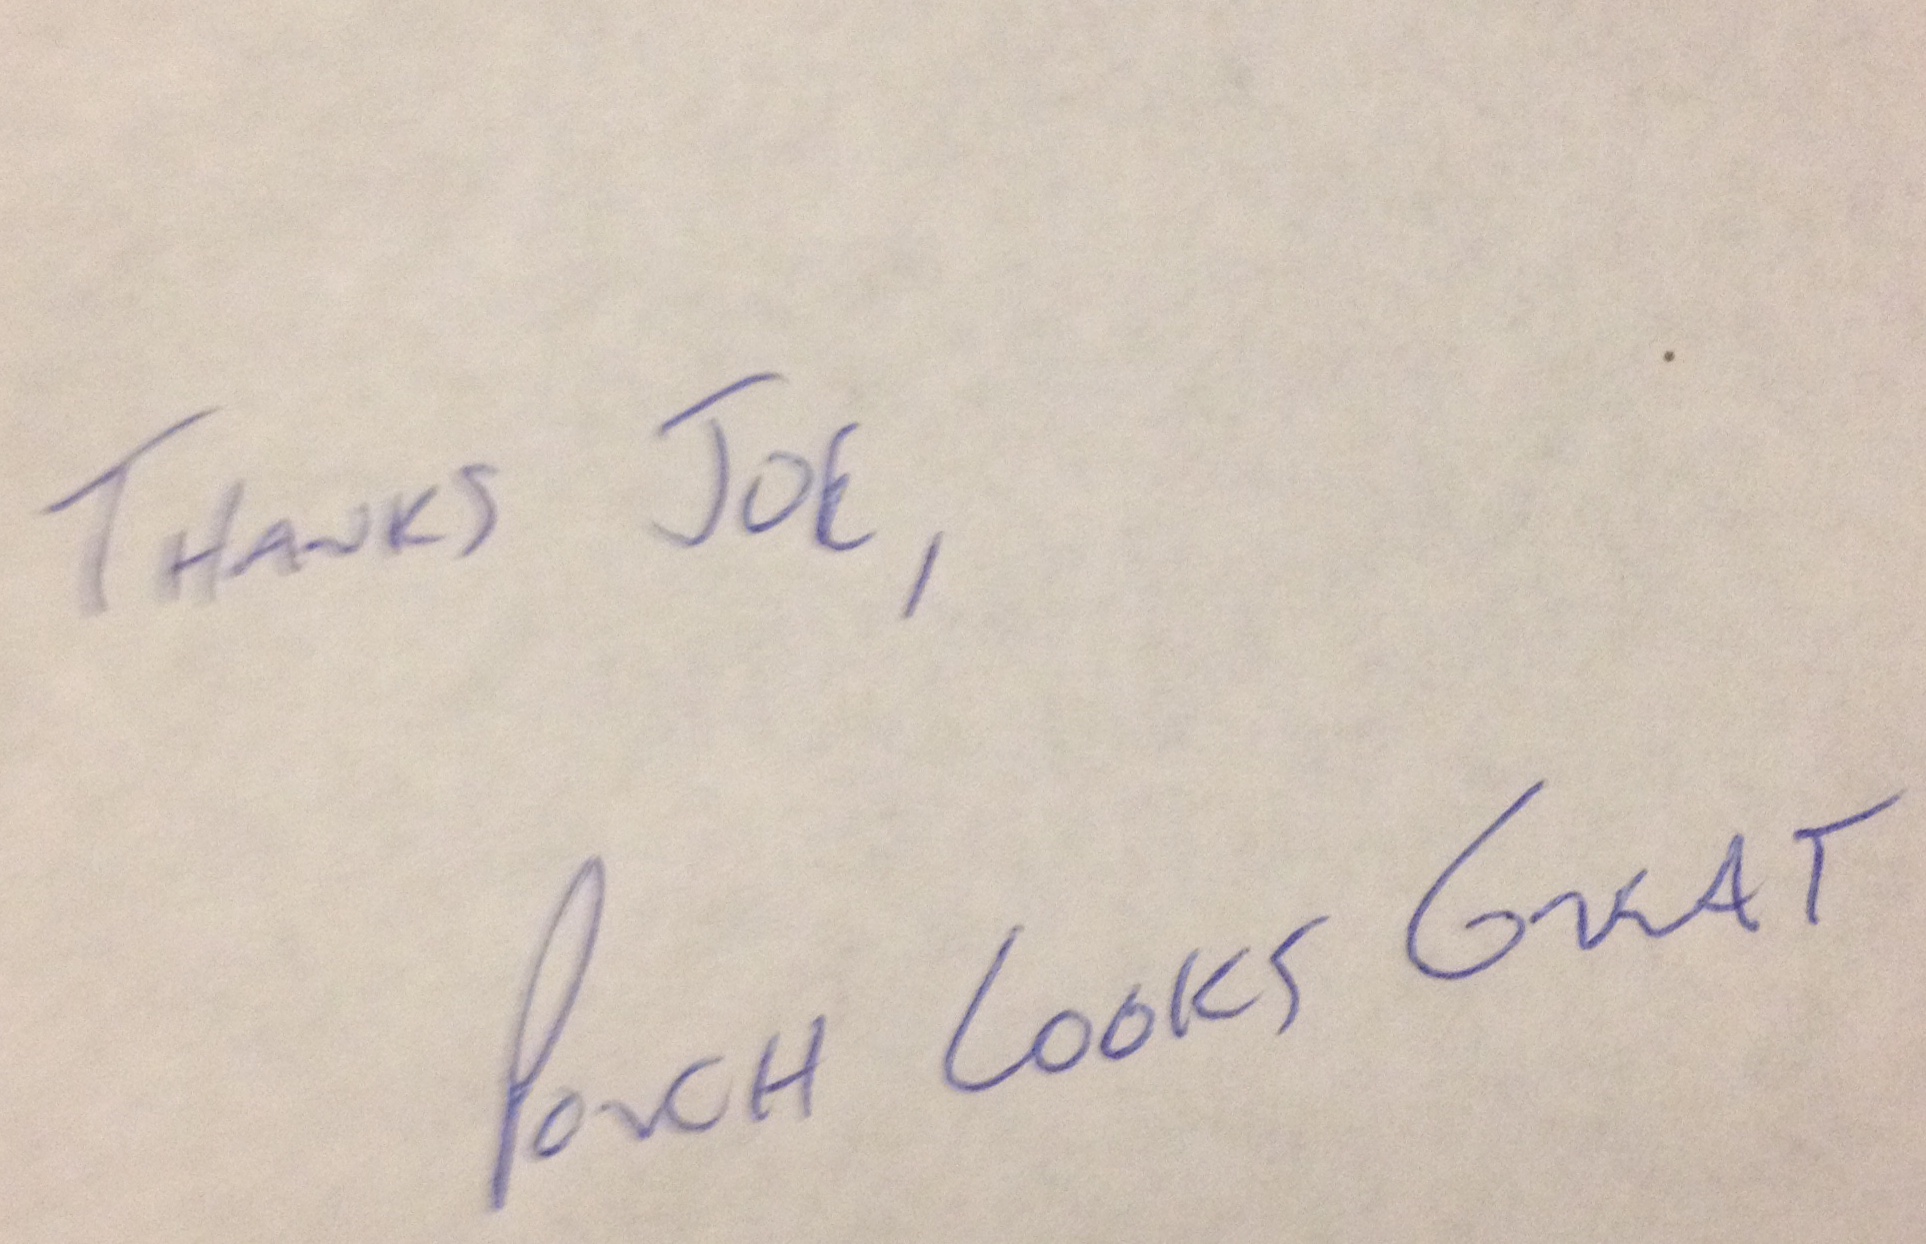 THANKS JOE,
PORCH LOOKS GREAT